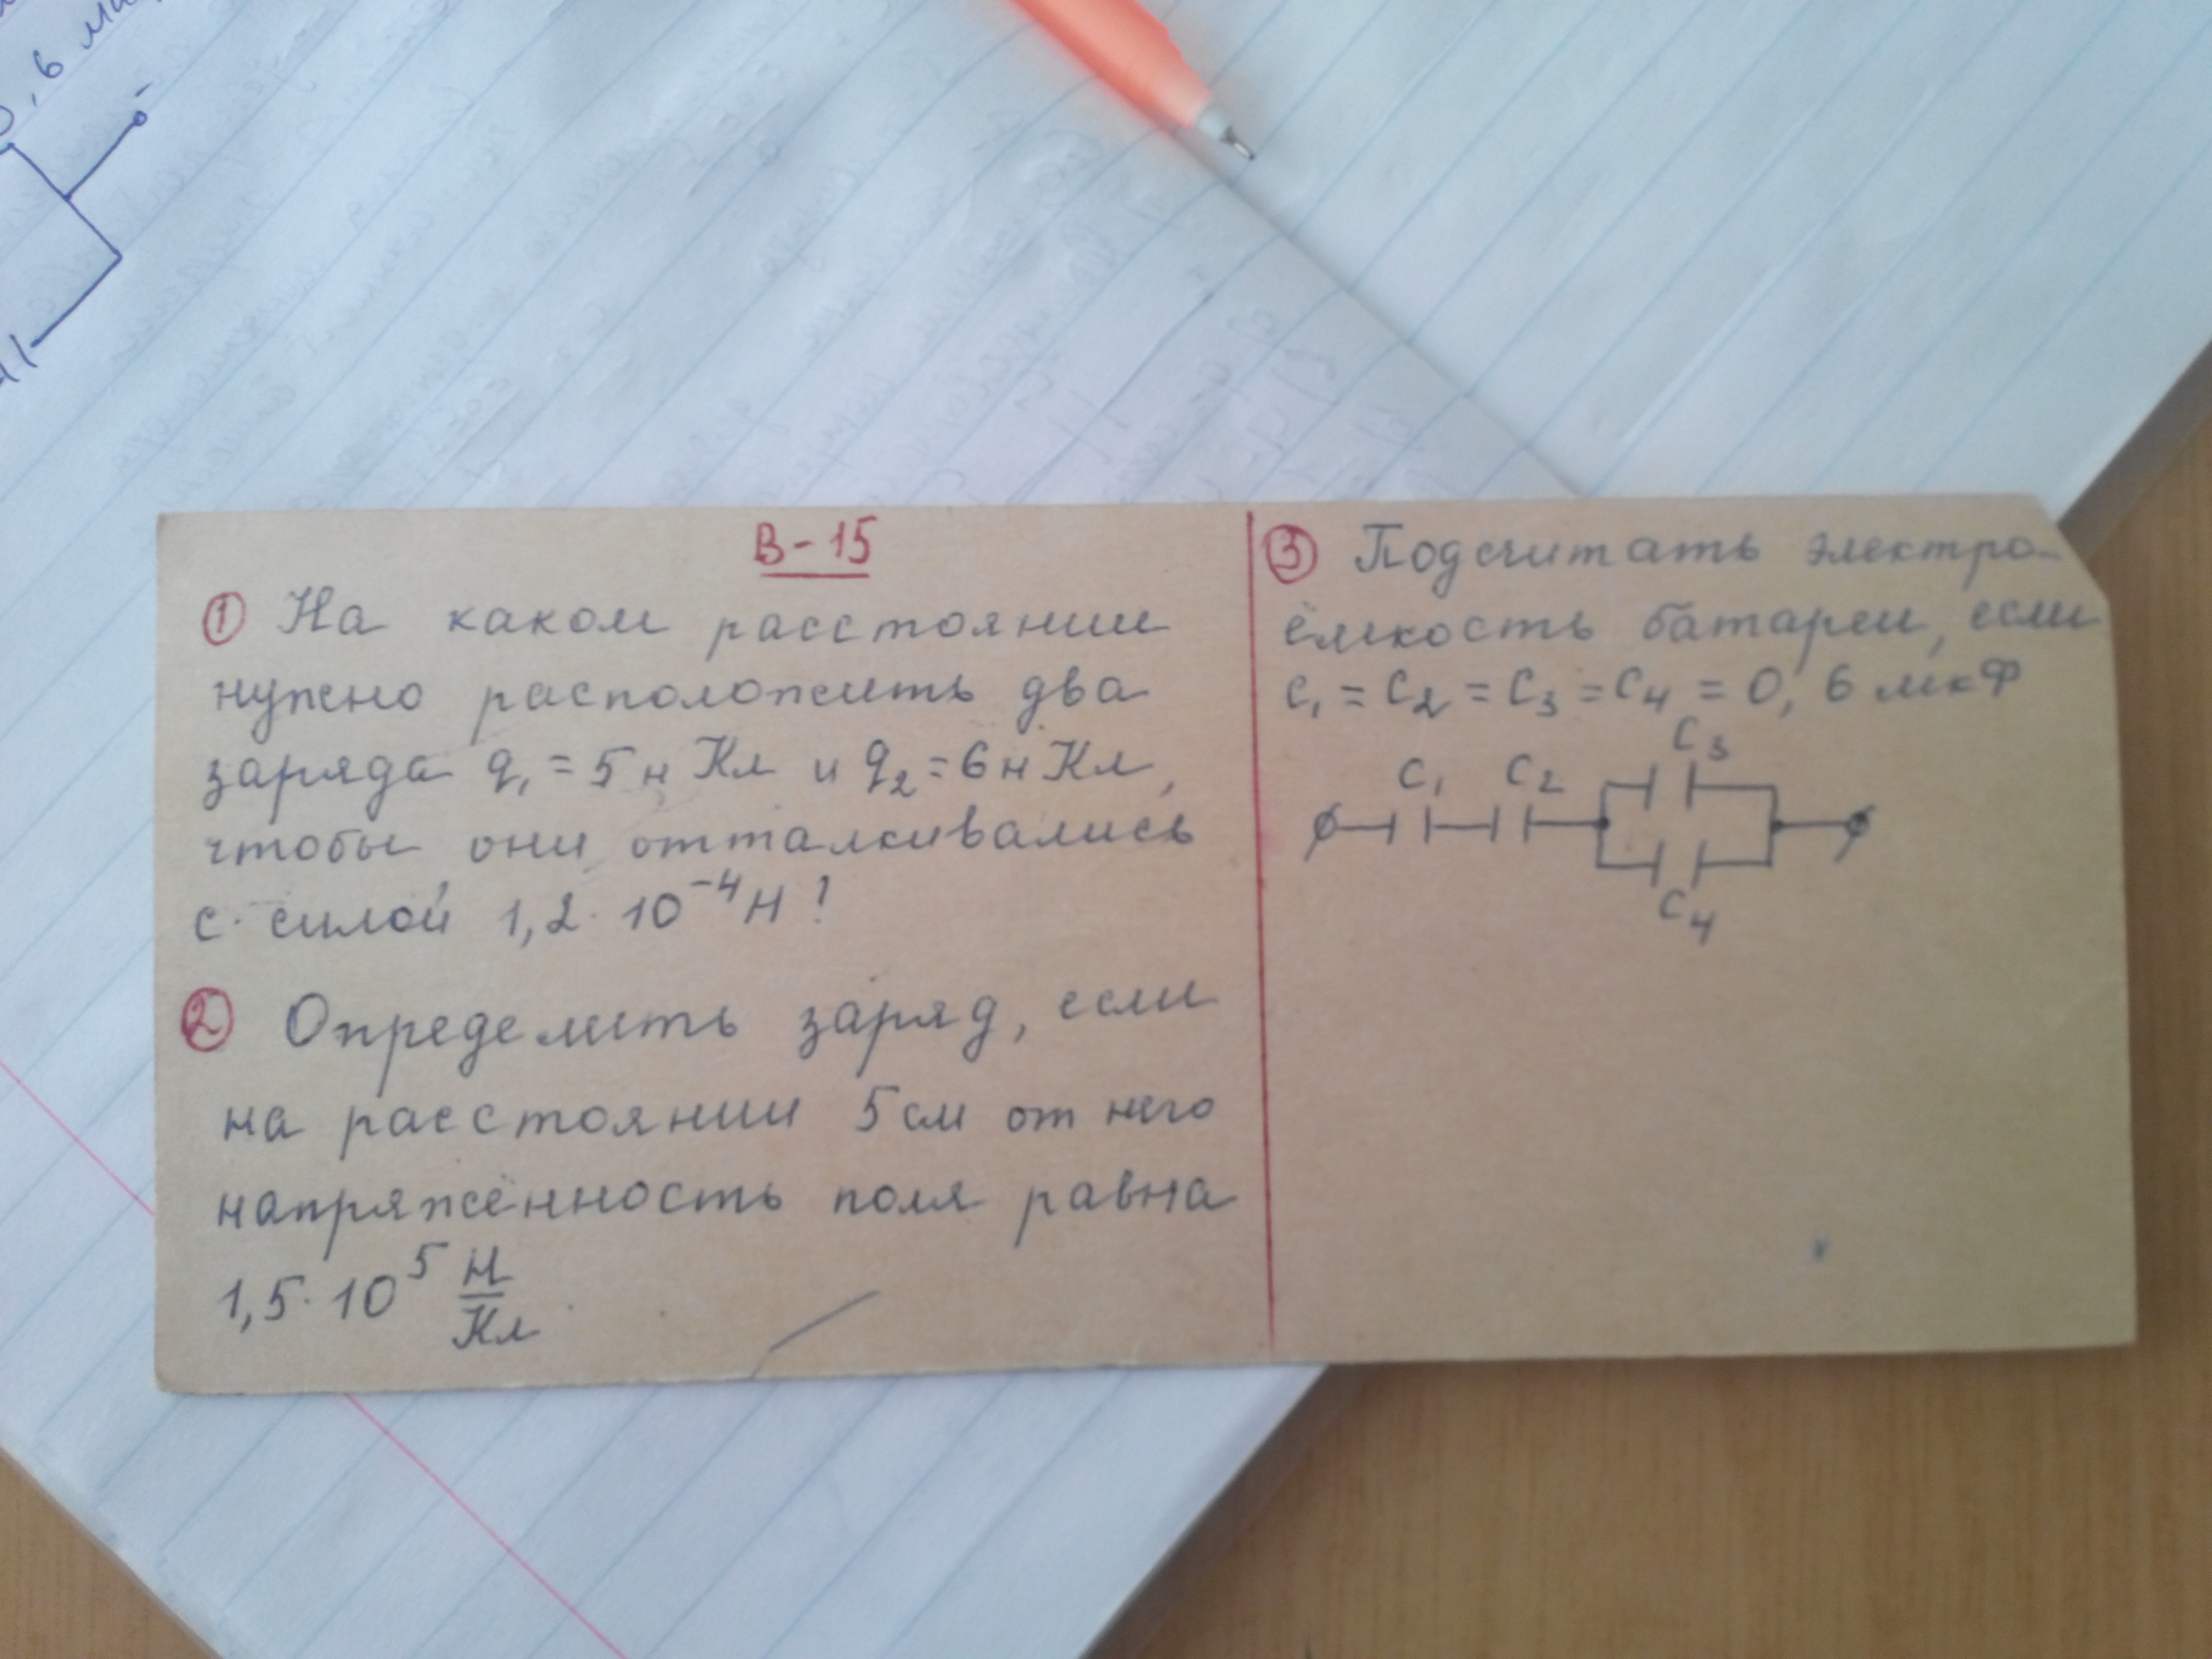 В-15
① На каком расстоянии
нужно расположить два
заряда q₁ = 5 нКл и q₂ = 6 нКл,
чтобы они отталкивались
с силой 1,2 · 10⁻⁴ Н?
② Определить заряд, если
на расстоянии 5 см от него
напряжённость поля равна
1,5 · 10⁵ Н/Кл
③ Подсчитать электро-
ёмкость батареи, если
C₁ = C₂ = C₃ = C₄ = 0,6 мкФ
C₃
C₁ C₂
C₄